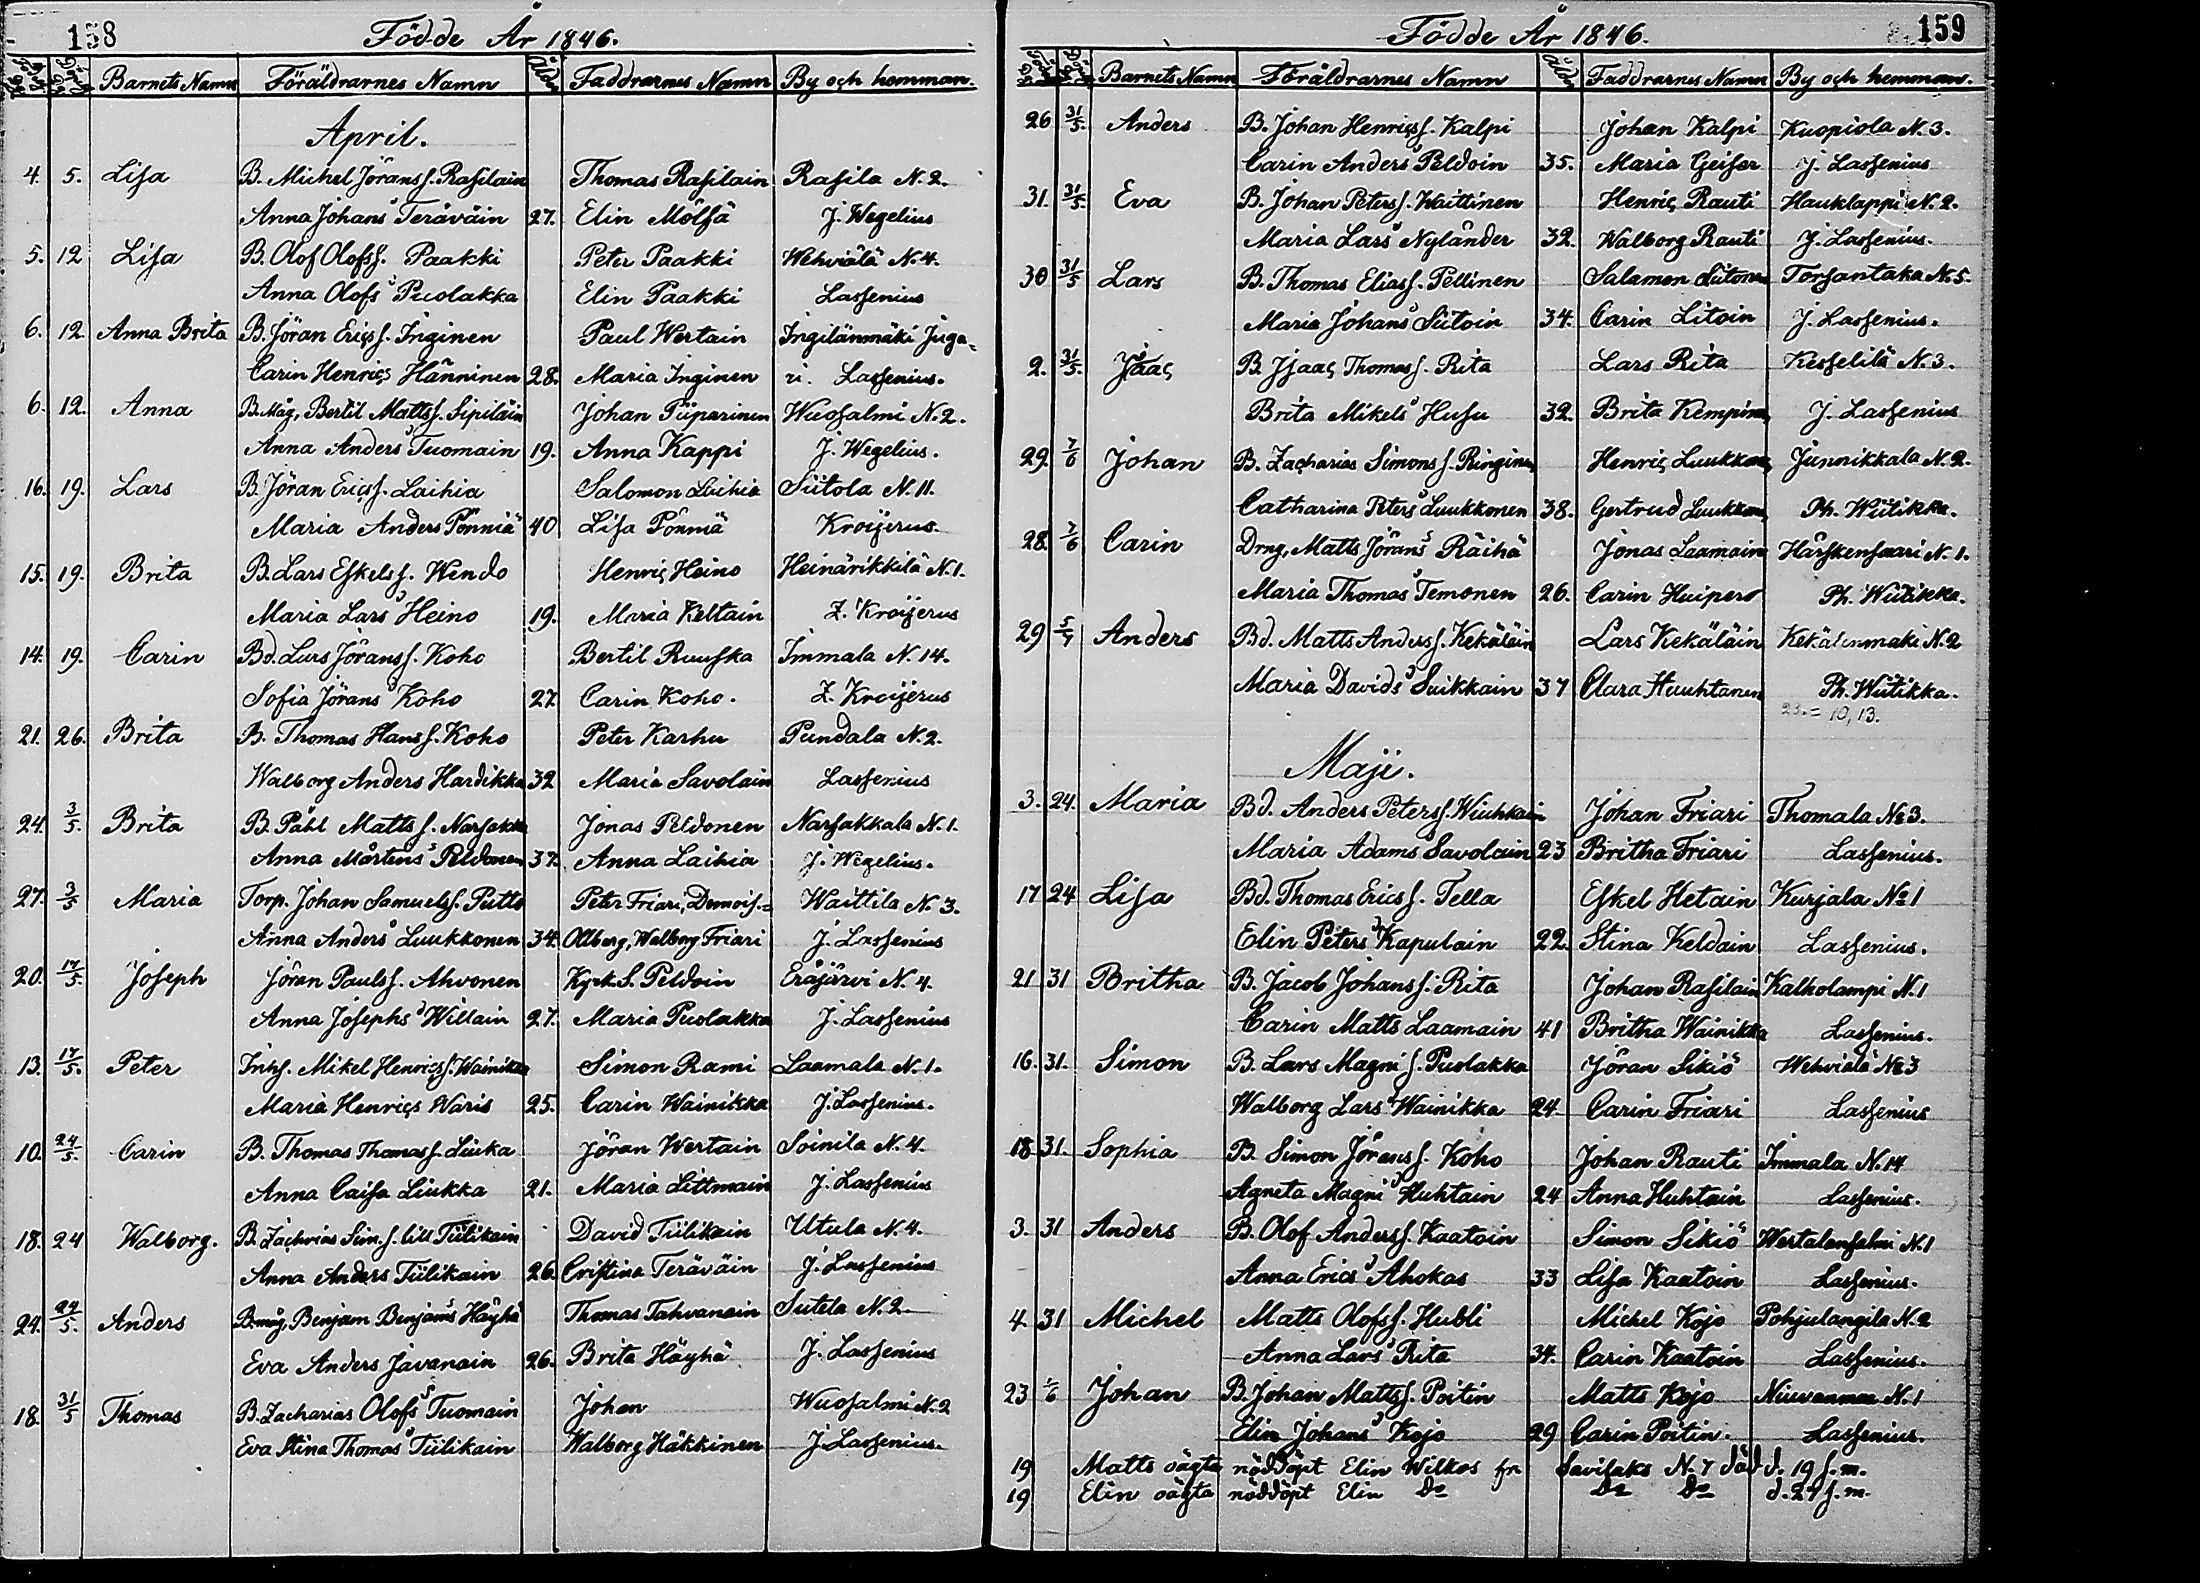 158 Födde År 1846.
Barnets Namn Föräldrarnes Namn Ålder Faddrarnes Namn By och hemman.
April.
4. 5. Lisa B. Michel Jöranss. Rasilain Thomas Rasilain Rasila N. 2.
Anna Johans Teräväin 27. Elin Mölsä J. Wegelius
5. 12 Lisa B. Olof Olofss. Paakki Peter Paakki Wehviälä N. 4.
Anna Olofs Puolakka Elin Paakki Lassenius
6. 12. Anna Brita B. Jöran Ericss. Inginen Paul Wertain Ingilänmäki Juga-
Carin Henrics Hänninen 28. Maria Inginen ri. Lassenius.
6. 12. Anna B. Måg, Bertil Mattss. Sipiläin Johan Piiparinen Wuosalmi N. 2.
Anna Anders Tuomain 19. Anna Kappi J. Wegelius.
16. 19. Lars B. Jöran Ericss. Laihia Salomon Laihia Siitola N. 11.
Maria Anders Pönniä 40 Lisa Pönniä Kroijerus.
15. 19. Brita B. Lars Eskelss. Wendo Henric Heino Heinärikkilä N. 1.
Maria Lars Heino 19. Maria Keltain Z. Kroijerus
14. 19. Carin Bd. Lars Jöranss. Koho Bertil Ruuska Immala N. 14.
Sofia Jörans Koho 27. Carin Koho. Z. Kroijerus
21. 26. Brita B. Thomas Hanss. Koho Peter Karhu Pundala N. 2.
Walborg Anders Hardikka 32 Maria Savolain Lassenius
24. 3/5. Brita B. Påhl Matts s. Narsakka Jonas Peldonen Narsakkala N. 1.
Anna Mårtens Peldonen 37. Anna Laihia J. Wegelius.
27. 3/5 Maria Torp. Johan Samuelss. Putto Peter Friari, Demois.= Waittila N. 3.
Anna Anders Luukkonen 34. Ollberg, Walborg Friari J. Lassenius
20. 17/5. Joseph Jöran Paulss. Ahvonen Kyrk. S. Peldoin Eräjärvi N. 4.
Anna Josephs Willain 27. Maria Puolakka J. Lassenius
13. 17/5. Peter Inhs. Mikel Henricss. Wainikka Simon Rami Laamala N. 1.
Maria Henrics Waris 25. Carin Wainikka J. Lassenius.
10. 24/5. Carin B. Thomas Thomass. Liuka Jöran Wertain Soinila N. 4.
Anna Caisa Liukka 21. Maria Littmain J. Lassenius
18. 24 Walborg. B. Zachrias Sim. s. till Tiilikain David Tiilikain Utula N. 4.
Anna Anders Tiilikain 26. Cristina Teräväin J. Lassenius
24. 24/5. Anders B. måg, Benjam Benjams Häyhä Thomas Tahvanain Sutela N. 2.
Eva Anders Javanain 26. Brita Häyhä J. Lassenius
18. 31/5 Thomas B. Zacharias Olofs Tuomain Johan Wuosalmi N. 2
Eva Stina Thomas Tiilikain Walborg Häkkinen J. Lassenius.
Födde År 1846. 159
Barnets Namn Föräldrarnes Namn Ålder Faddrarnes Namn By och hemman.
26 31/5. Anders B. Johan Henricss. Kalpi Johan Kalpi Kuopiola N. 3.
Carin Anders Peldoin 35. Maria Geiser J. Lassenius
31. 31/5. Eva B. Johan Peterss. Waittinen Henric Rauti Hauklappi N. 2.
Maria Lars Nyländer 32. Walborg Rauti J. Lassenius.
30 31/5 Lars B. Thomas Eliass. Pellinen Salamon Siitonen Torsantaka N. 5.
Maria Johans Siitoin 34. Carin Litoin J. Lassenius.
2. 31/5. Isaac B. Isaac Thomass. Rita Lars Rita Kesselilä N. 3.
Brita Mikels Husu 32. Brita Kempinen J. Lassenius
29. 7/6 Johan B. Zacharias Simonss. Ringinen Henric Luukkonen Junnikkala N. 2.
Catharina Peters Luukkonen 38. Gertrud Luukkonen Ph. Wiitikka.
28. 7/6 Carin Drng, Matts Jörans Räihä Jonas Laamain Härskensaari N. 1.
Maria Thomas Temonen 26. Carin Huipero Ph. Wiitikka.
29 5/7 Anders Bd. Matts Anderss. Kekäläin Lars Kekäläin Kekälenmäki N. 2
Maria Davids Suikkain 37 Clara Huuhtanen Ph. Wiitikka.
23. = 10, 13.
Maji.
3. 24. Maria Bd. Anders Peterss. Wiuhkain Johan Friari Thomala No 3.
Maria Adams Savolain 23 Britha Friari Lassenius.
17 24 Lisa Bd. Thomas Erics s. Tella Eskel Hetain Kurjala No 1
Elin Peters Kapulain 22. Stina Keldain Lassenius.
21 31 Britha B. Jacob Johanss. Rita Johan Rasilain Kalholampi N. 1
Carin Matts Laamain 41 Britha Wainikka Lassenius.
16. 31. Simon B. Lars Magni s. Puolakka Jöran Sikiö Wehviälä No 3
Walborg Lars Wainikka 24 Carin Friari Lassenius
18 31. Sophia B. Simon Jöranss. Koho Johan Rauti Immala N. 14
Agneta Magni Huhtain 24 Anna Huhtain Lassenius.
3. 31 Anders B. Olof Anderss. Kaatoin Simon Sikiö Wertalansalmi N. 1
Anna Erics Ahokas 33 Lisa Kaatoin Lassenius.
4 31 Michel Matts Olofss. Hubli Michel Kojo Pohjulangila N. 2
Anna Lars Rita 34. Carin Kaatoin Lassenius.
23 1/6 Johan B. Johan Mattss. Poitin Matts Kojo Niuvanmaa N. 1
Elin Johans Kojo 29 Carin Poitin. Lassenius.
19 Matts oägta nöddöpt Elin Wilkos fr. Savilaks N. 7 död d. 19 s. m.
19 Elin oägta nöddöpt Elin Do Do Do d. 27 s. m.